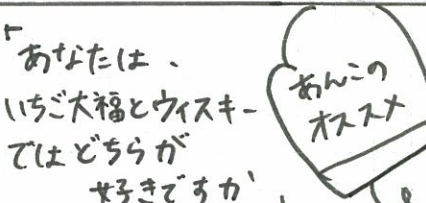 「あなたは、
いちご大福とウィスキー
ではどちらが
好きですか
あんこの
オススメ